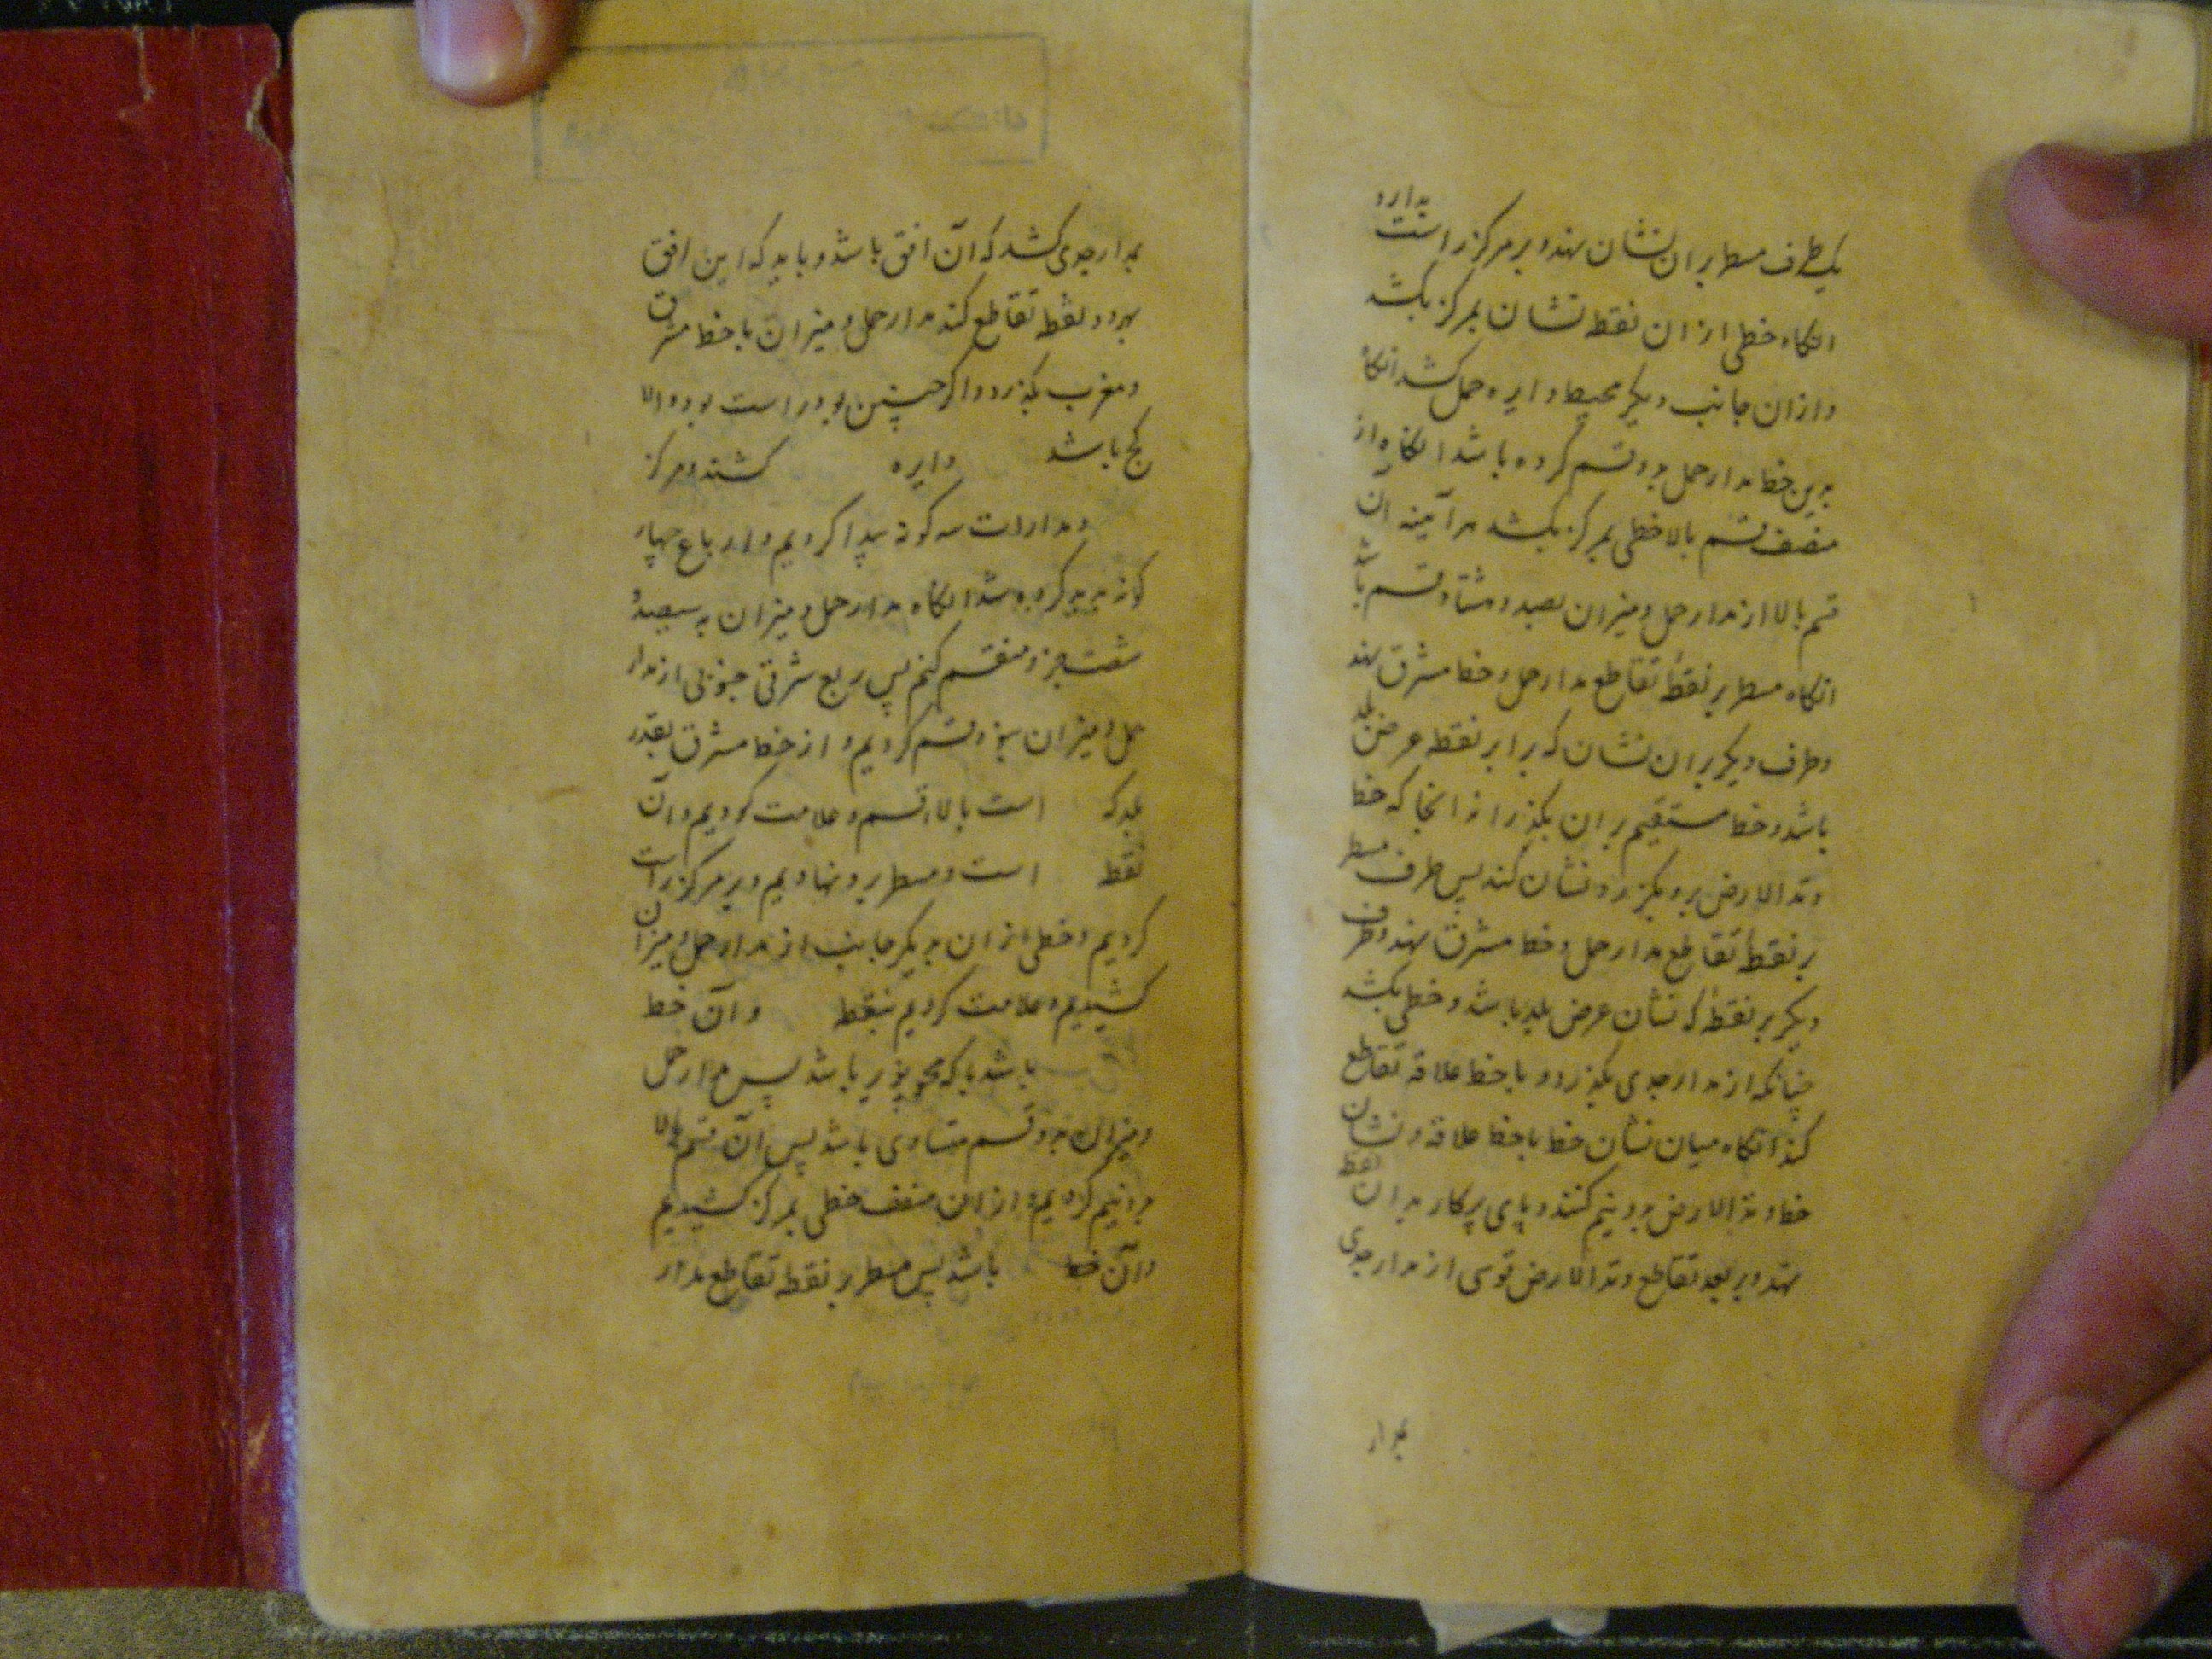 یک طرف مسطر بران نشان نهد و بر مرکز راست بدارد
انگاه خطی ازان نقطه نشان بمرکز بکشد
و ازان جانب دیگر محیط دایره حمل کشد انگاه
بدین خط مدار حمل بدو قسم کرده باشد انگاه از
منصف قسم بالا خطی بمرکز بکشد هر آینه آن
قسم بالا از مدار حمل و میزان بصد و هشتاد قسم باشد
انگاه مسطر بر نقطهٔ تقاطع مدار حمل و خط مشرق نهد
و طرف دیگر بران نشان که برابر نقطه عرض بلد
باشد و خط مستقیم بران بگذرد از انجا که خط
وتد الارض برو بگذرد و نشان کند پس طرف مسطر
بر نقطهٔ تقاطع مدار حمل و خط مشرق نهد و طرف
دیگر بر نقطهٔ که نشان عرض بلد باشد و خطی بکشد
چنانکه از مدار جدی بگذرد و با خط علاقه تقاطع
کند انگاه میان نشان خط با خط علاقه و نشان
خط وتد الارض بدو نیم کنند و پای پرکار بدان نقطه
نهد و ببعد تقاطع وتد الارض قوسی از مدار جدی
بمدار
بمدار جدی کشد که آن افق باشد و باید که این افق
بهر دو نقطه تقاطع کند مدار حمل و میزان با خط مشرق
و مغرب بگذرد و اگر چنین بود راست بود و الا
کج باشد دایره کشند و مرکز
و مدارات سه گونه پیدا کردیم و ارباع چهار
گانه پدید کرده شد انگاه مدار حمل و میزان به سیصد و
شصت جزو منقسم کنم پس ربع شرقی جنوبی از مدار
حمل و میزان بنود قسم کردیم و از خط مشرق بقدر
بلد که است بالا قسم و علامت کردیم و آن
نقطه است و مسطر برو نهادیم و بر مرکز راست
کردیم و خطی ازان بدیگر جانب از مدار حمل و میزان
کشیدیم و علامت کردیم بنقطه و آن خط
باشد با که محو پذیر باشد پس مدار حمل
و میزان بدو قسم متساوی باشد پس آن قسم بالا
بدو نیم کردیم و ازان منصف خطی بمرکز کشیدیم
و آن خط باشد پس مسطر بر نقطه تقاطع مدار